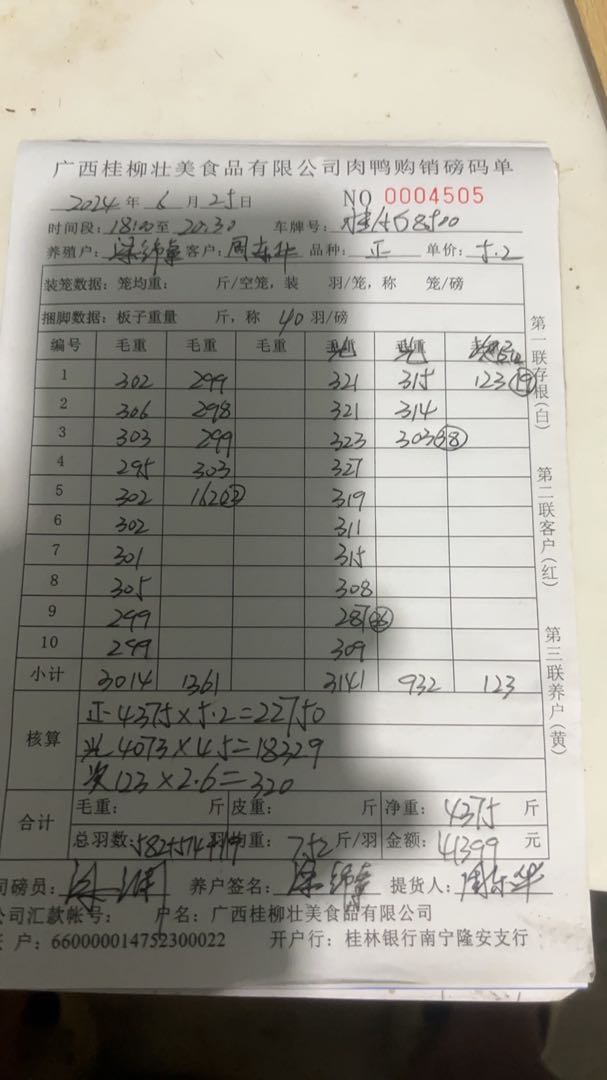 广西桂柳壮美食品有限公司肉鸭购销磅码单
2024 年 6 月 25 日 NO 0004505
时间段: 18:00 至 20:30 车牌号:
养殖户: 客户: 品种: 正 单价: 5.2
装笼数据: 笼均重: 斤/空笼, 装 羽/笼, 称 笼/磅
捆脚数据: 板子重量 斤, 称 40 羽/磅
编号 毛重 毛重 毛重
1 302 299 321 315 123 19
2 306 298 321 314
3 303 299 323 303 38
4 295 303 327
5 302 162 319
6 302 311
7 301 315
8 305 308
9 299 287
10 299 309
小计 3014 1361 3141 932 123
核算
正 4375×5.2=22750
光 4073×4.5=18329
次 123×2.6=320
合计
毛重: 斤 皮重: 斤 净重: 4375 斤
总羽数: 均重: 7.52 斤/羽 金额: 41399 元
司磅员: 养户签名: 提货人:
公司汇款帐号: 户名: 广西桂柳壮美食品有限公司
户: 660000014752300022 开户行: 桂林银行南宁隆安支行
第一联存根(白)
第二联客户(红)
第三联养户(黄)